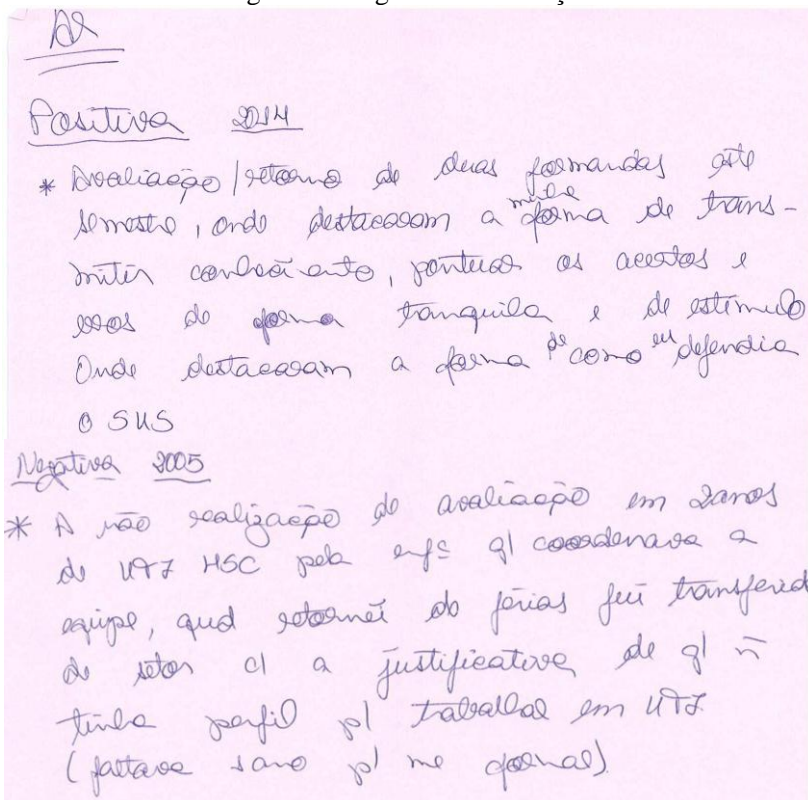 Positiva 2014
* Avaliação/retorno de duas formandas este
semestre, onde destacaram a minha forma de trans-
mitir conhecimento, pontuar os acertos e
erros de forma tranquila e de estímulo
Onde destacaram a forma de como eu defendia
o SUS
Negativa 2005
* A não realização de avaliação em 2 anos
de UTI HSC pela enfª q/ coordenava a
equipe, qud retornei do férias fui transferid
de setor c/ a justificativa de q/ ñ
tinha perfil p/ trabalhar em UTI.
(faltava 1 ano p/ me formar).